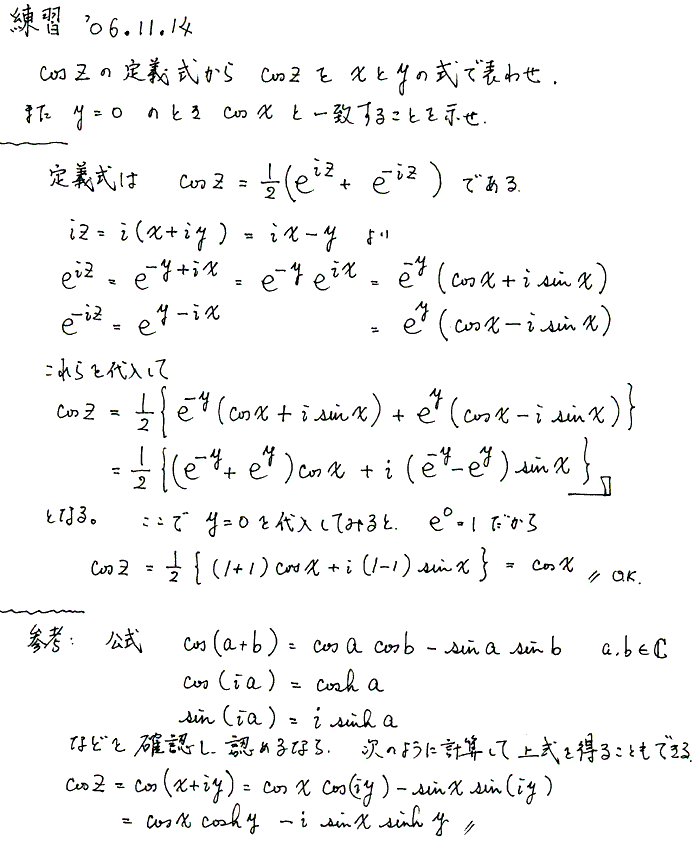 練習 '06.11.14
cos z の定義式から cos z を x と y の式で表わせ.
また y=0 のとき cos x と一致することを示せ.
定義式は cos z = 1/2 (e^{iz} + e^{-iz}) である.
iz = i(x+iy) = ix-y より
e^{iz} = e^{-y+ix} = e^{-y} e^{ix} = e^{-y} (cos x + i sin x)
e^{-iz} = e^{y-ix} = e^{y} (cos x - i sin x)
これらを代入して
cos z = 1/2 { e^{-y} (cos x + i sin x) + e^{y} (cos x - i sin x) }
= 1/2 { (e^{-y} + e^{y}) cos x + i (e^{-y} - e^{y}) sin x }
となる。 ここで y=0 を代入してみると. e^0=1 だから
cos z = 1/2 { (1+1) cos x + i (1-1) sin x } = cos x // OK.
参考: 公式 cos(a+b) = cos a cos b - sin a sin b a.b∈ℂ
cos(ia) = cosh a
sin(ia) = i sinh a
などを確認し. 認めるなら. 次のように計算して上式を得ることもできる.
cos z = cos(x+iy) = cos x cos(iy) - sin x sin(iy)
= cos x cosh y - i sin x sinh y //